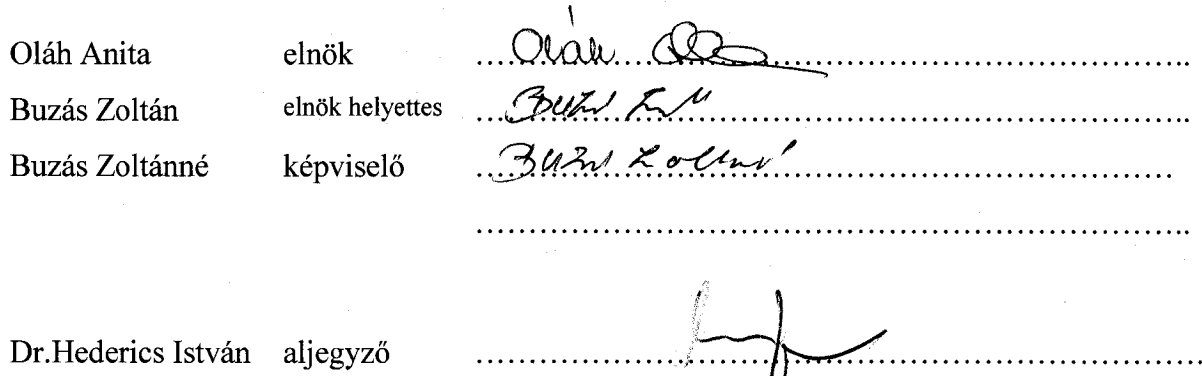 Oláh Anita elnök ....Oláh....
Buzás Zoltán elnök helyettes ....
Buzás Zoltánné képviselő ....
....
Dr.Hederics István aljegyző ....